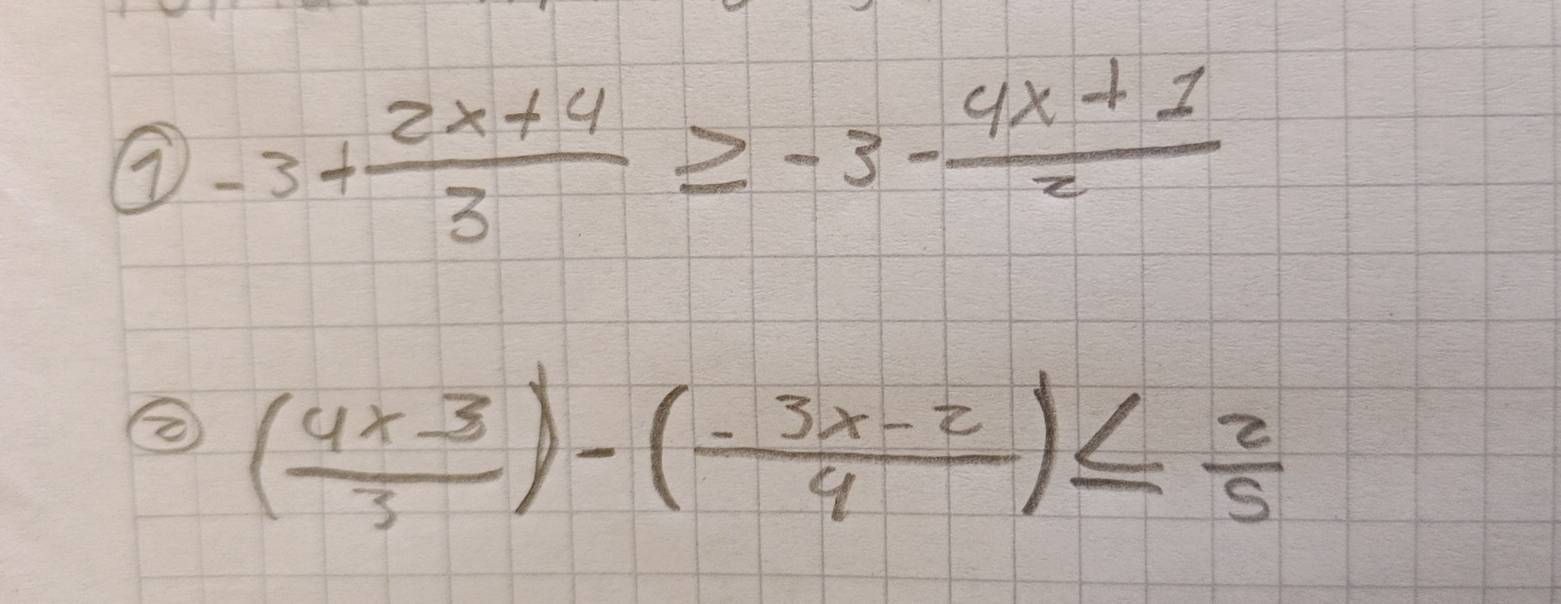 ① -3 + (2x + 4)/3 ≥ -3 - (4x + 1)/2
② ((4x - 3)/3) - ((-3x - 2)/4) ≤ 2/5